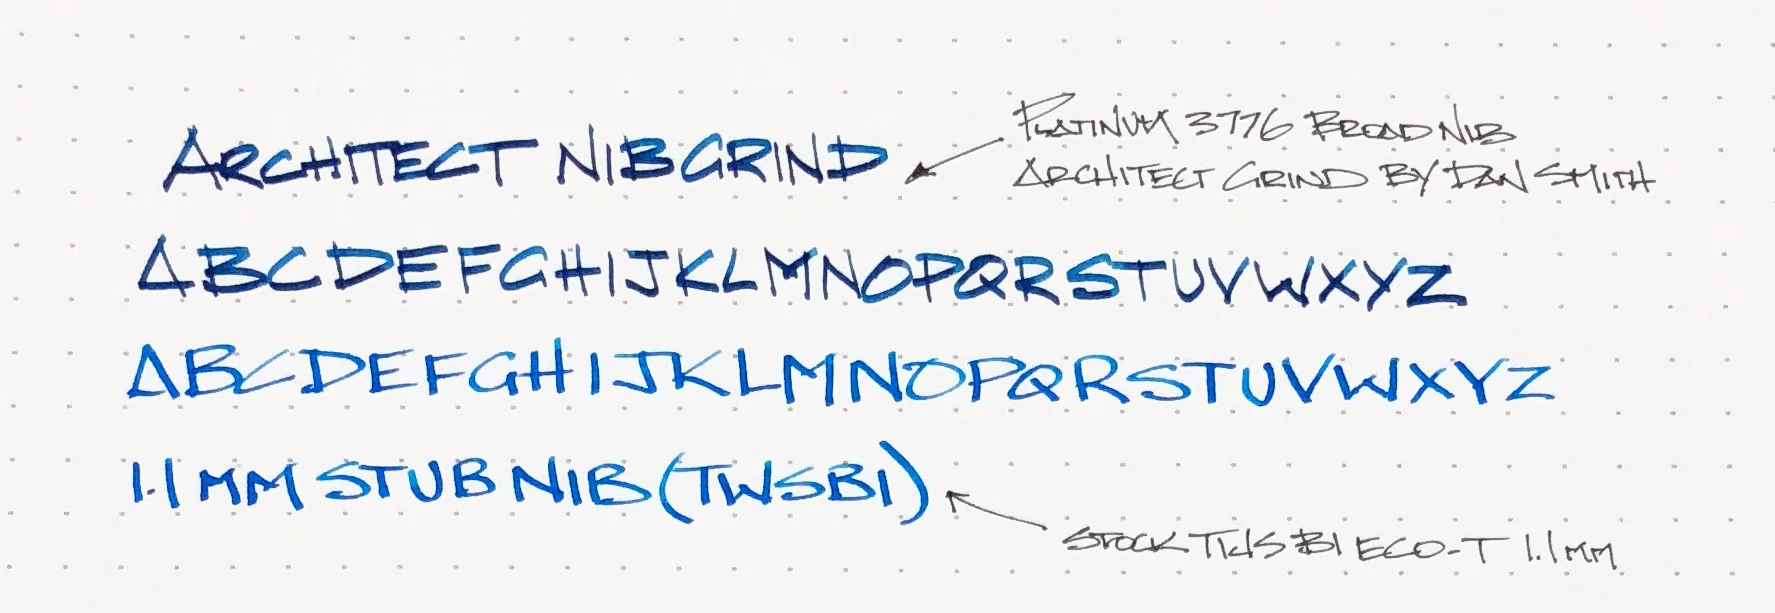 ARCHITECT NIB GRIND
PLATINUM 3776 BROAD NIB
ARCHITECT GRIND BY DAN SMITH
ABCDEFGHIJKLMNOPQRSTUVWXYZ
ABCDEFGHIJKLMNOPQRSTUVWXYZ
1.1 MM STUB NIB (TWSBI)
STOCK TWSBI ECO-T 1.1MM